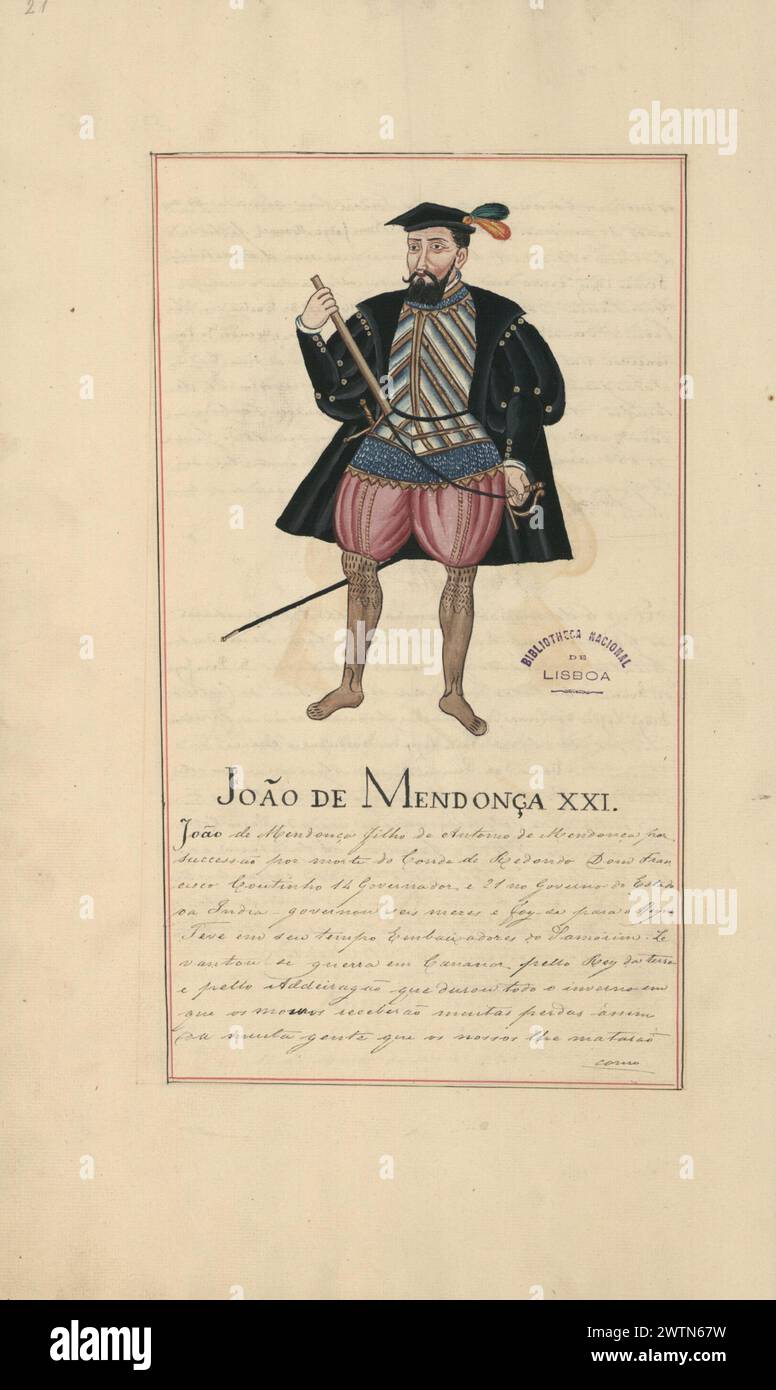 21
alamy
BIBLIOTHECA NACIONAL
DE
LISBOA
JOÃO DE MENDONÇA XXI.
João de Mendonça filho de Antonio de Mendonça por
successão por morte do Conde de Redondo Dom Fran
cisco Coutinho 14 Governador e 21 no Governo do Estado
da India governou seis mezes e foy-se para o Reyno
Teve em seu tempo Embaixadores do Samorim. Le
vantou se guerra em Cananor pello Rey da terra
e pello que durou todo o inverno em
que os mouros receberão muitas perdas assim
da muita gente que os nossos lhe matarão
como
alamy
Image ID: 2WTN67W
www.alamy.com